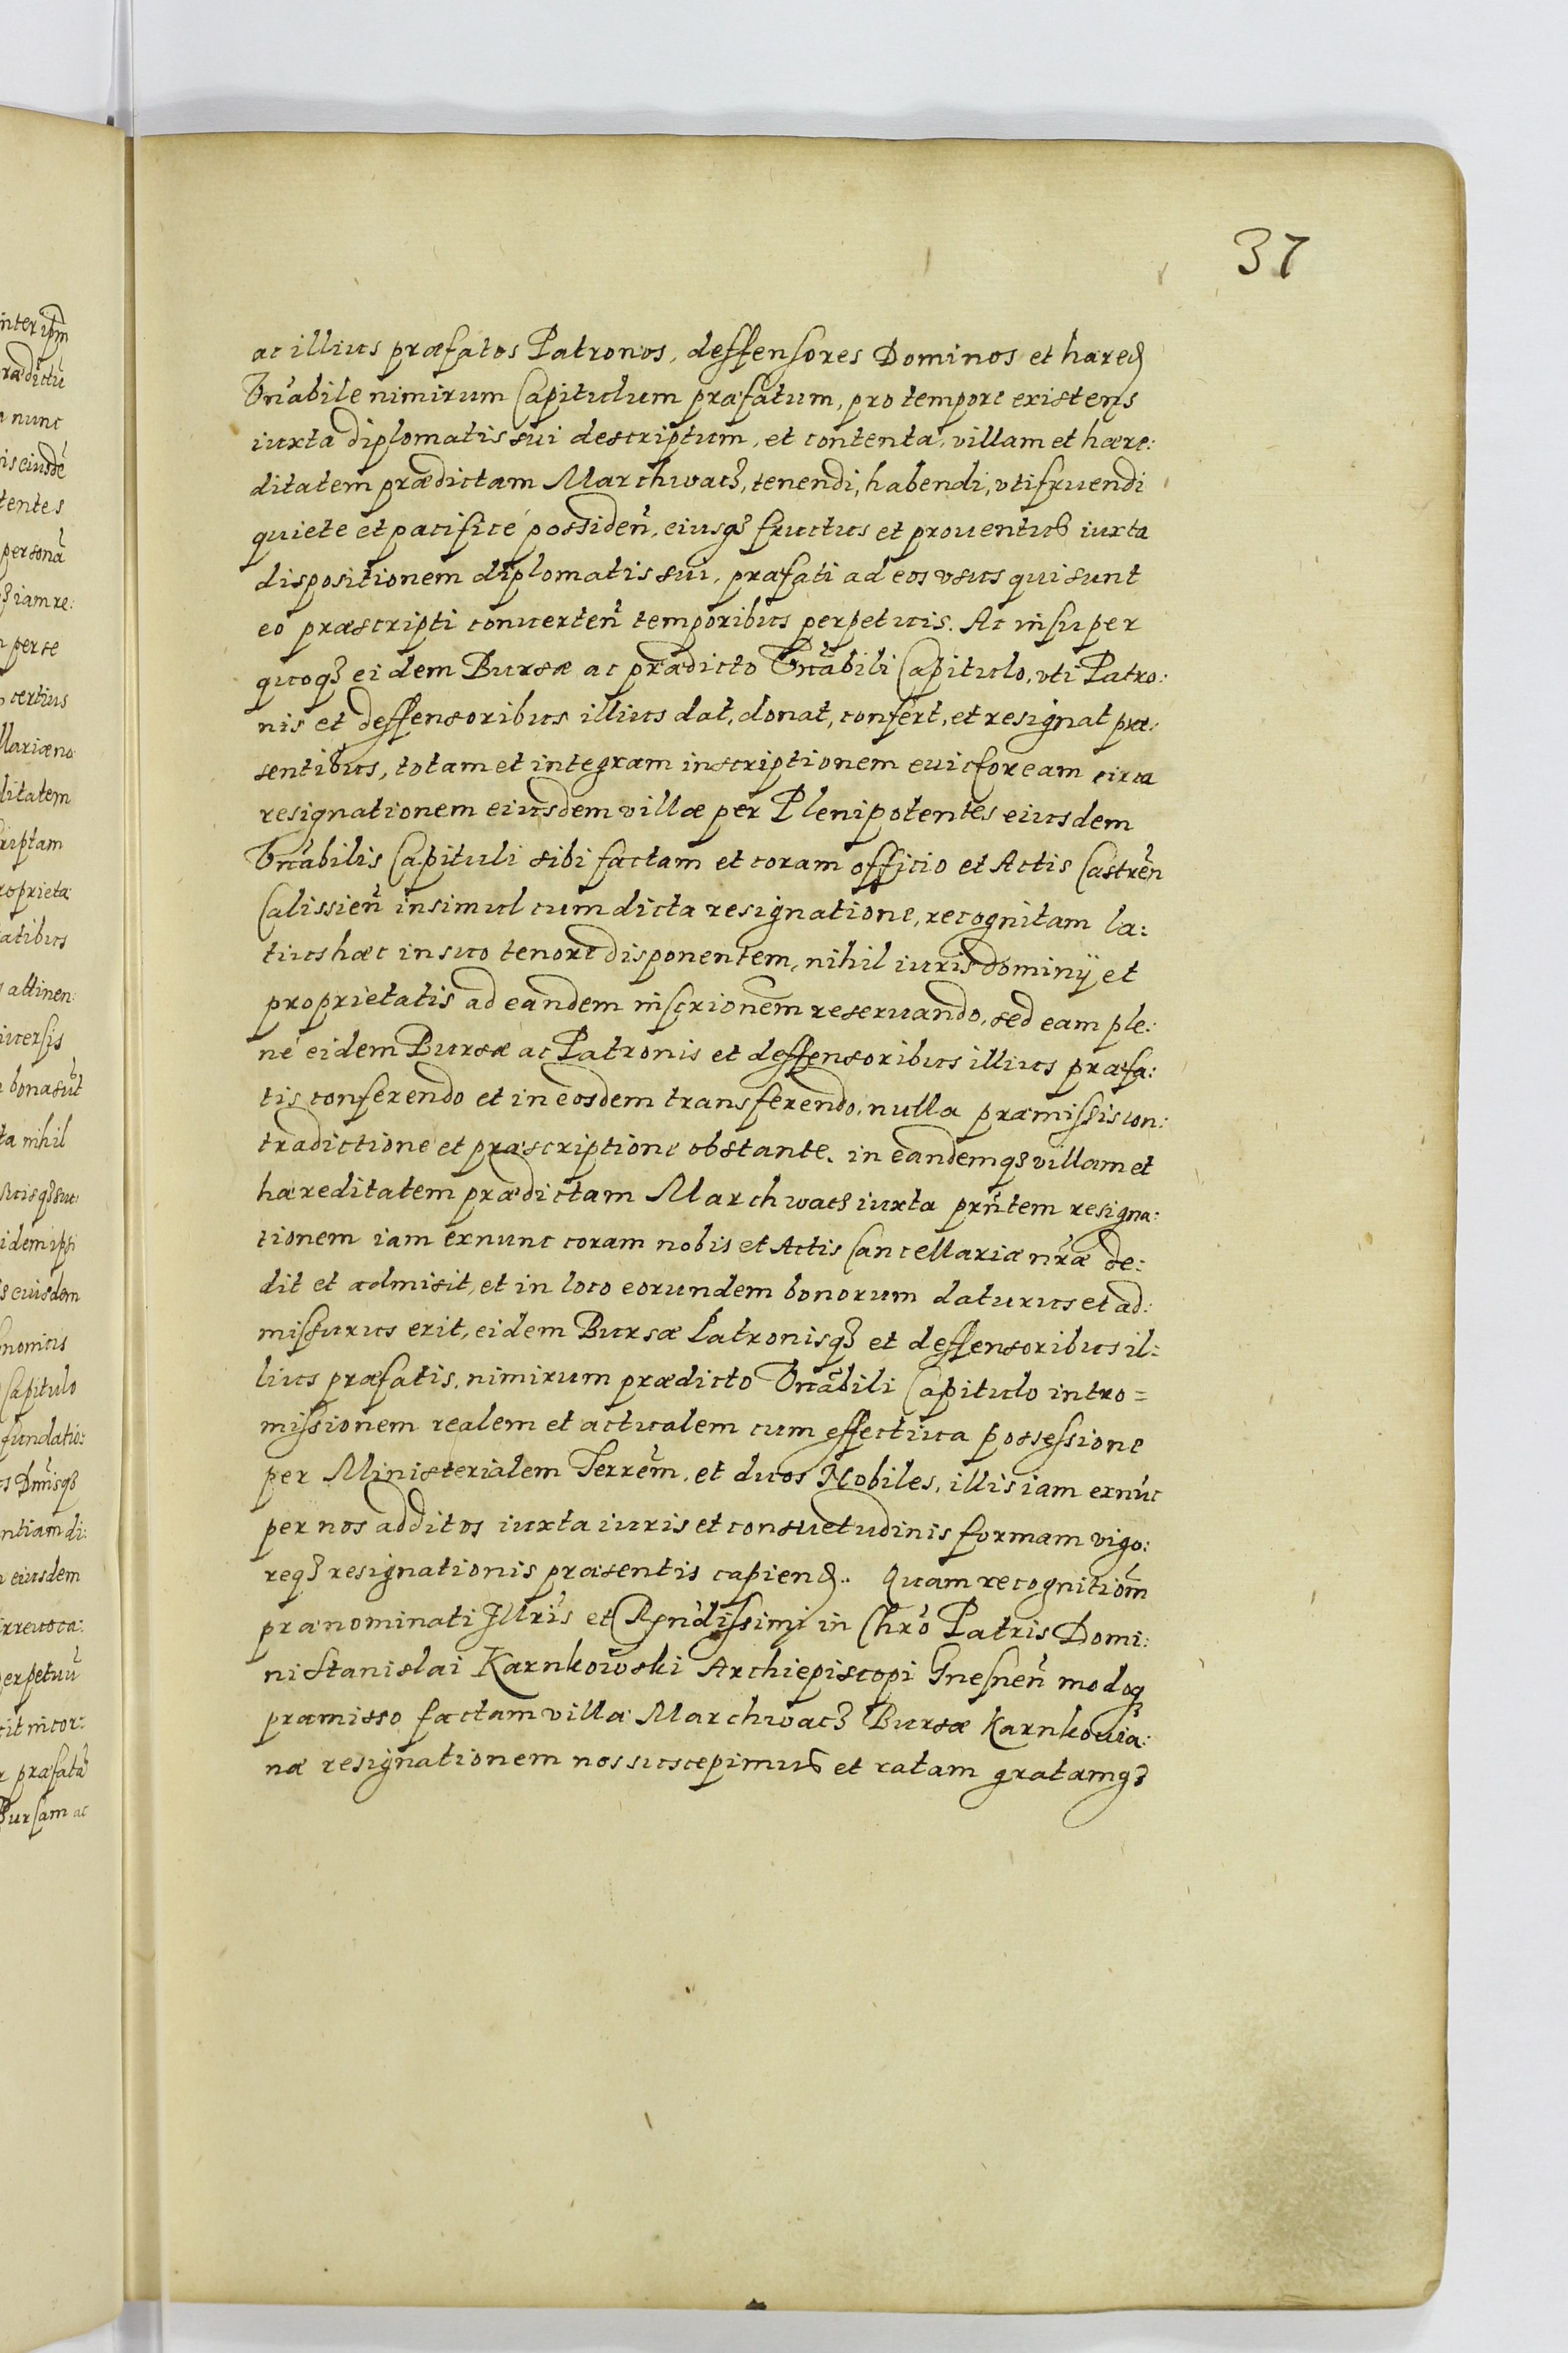 37
ac illius præfatos Patronos, deffensores Dominos et hæred
Vn̄abile nimirum Capitulum præfatum, pro tempore existens
iuxta diplomatis sui descriptum, et contenta, villam et hære:
ditatem prædictam Marchwacz, tenendi, habendi, vtifruendi
quiete et pacificé possiden̄, eiusq3 fructus et prouentus iuxta
dispositionem diplomatis sui, præfati ad eos vsus qui sunt
eo præscripti conuerten̄ temporibus perpetuis. Ac insuper
quoq3 eidem Bursæ ac prædicto Vn̄abili Capitulo, vti Patro:
nis et deffensoribus illius dat, donat, confert, et resignat præ:
sentibus, totam et integram inscriptionem euictoream circa
resignationem eiusdem villæ per Plenipotentes eiusdem
Vn̄abilis Capituli sibi factam et coram officio et Actis Castren̄
Calissien̄ insimul cum dicta resignatione, recognitam la:
tius hæc in suo tenore disponentem, nihil iuris dominÿ et
proprietatis ad eandem inscrionem reseruando, sed eam ple:
né eidem Bursæ ac Patronis et deffensoribus illius præfa:
tis conferendo et in eosdem transferendo, nulla præmissis con:
tradictione et præscriptione obstante. in eandemq3 villam et
hæreditatem prædictam Marchwacz iuxta prn̄tem resigna:
tionem iam exnunc coram nobis et Actis Cancellariæ nr̄æ de:
dit et admisit, et in loco eorundem bonorum daturus et ad:
missurus erit, eidem Bursæ Patronisq3 et deffensoribus il:
lius præfatis, nimirum prædicto Vn̄abili Capitulo intro=
missionem realem et actualem cum effectiua possessione
per Ministerialem Terrēm, et duos Nobiles, illis iam exnūc
per nos additos iuxta iuris et consuetudinis formam vigo:
req3 resignationis præsentis capiend. Quam recognitiōm
prænominati Illrīs et Rn̄dissimi in Chrō Patris Domi:
ni Stanislai Karnkowski Archiepiscopi Gnesnen̄ modoq3
præmisso factam villæ Marchwacz Bursæ Karnkouia:
næ resignationem nos suscepimus et ratam gratamq3
inter ipm̄
rædictū
nunc
is eiusdē
tentes
personā
iam re:
per se
certius
llariæ no
ditatem
riptam
roprieta
atibus
attinen:
iuersis
bona sūt
ta nihil
idem ipsi
eiusdem
Capitulo
fundatio:
ntiam di:
eiusdem
rreuoca:
erpetuū
cit incor:
præfatā
Bursam ac